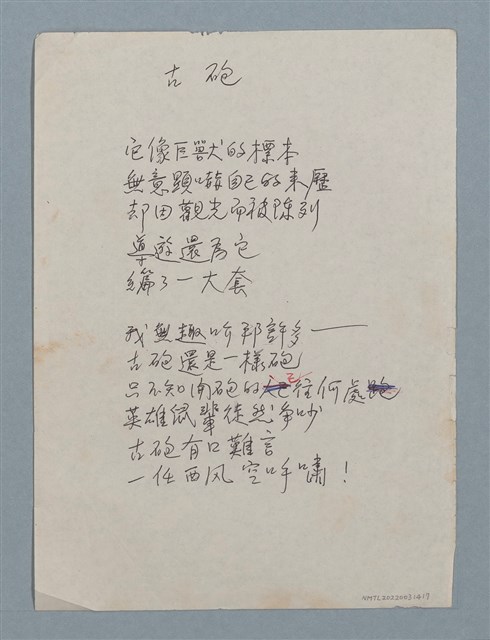 古砲
它像巨獸的標本
無意顯 自己的来歷
却因觀光而被陈列
導遊還為它
編了一大套
我無趣听那許多——
古砲還是一樣砲
只不知開砲的已往何處
英雄鼠輩徒然争吵
古砲有口難言
一任西风空呼嘯！
NMTL20220031417